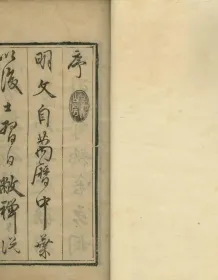 序
明文自萬曆中葉
以後士習日敝禪泛